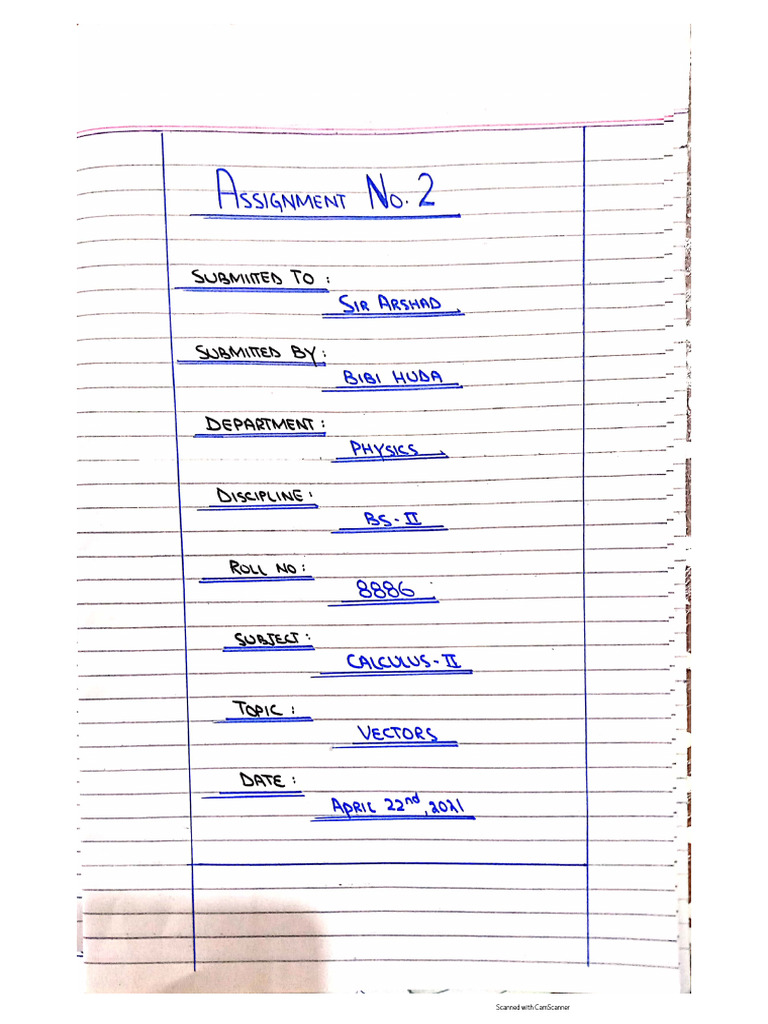 ASSIGNMENT No. 2
SUBMITTED TO :
SIR ARSHAD
SUBMITTED BY :
BIBI HUDA
DEPARTMENT :
PHYSICS
DISCIPLINE :
BS-II
ROLL NO :
8886
SUBJECT :
CALCULUS-II
TOPIC :
VECTORS
DATE :
APRIL 22nd, 2021
Scanned with CamScanner